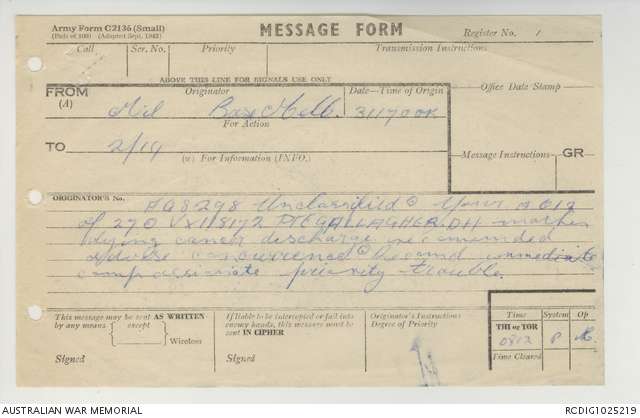 Army Form C2136 (Small)
(Pads of 100) (Adopted Sept. 1942)
MESSAGE FORM
Register No. 1
Call
Ser. No.
Priority
Transmission Instructions
ABOVE THIS LINE FOR SIGNALS USE ONLY
FROM
(A)
Originator
Date—Time of Origin
Office Date Stamp
Mil Base Melb. 311700K
For Action
TO
2/19
(w) For Information (INFO.)
Message Instructions
GR
ORIGINATOR'S No.
AG8298 Unclassified Your
of 270 VX118172 PTE GALLAGHER DH mother
dying cancer discharge recommended
advise concurrence and immediate
compassionate priority trouble.
This message may be sent AS WRITTEN
by any means except
Wireless
Signed
If liable to be intercepted or fall into
enemy hands, this message must be
sent IN CIPHER
Signed
Originator's Instructions
Degree of Priority
Time
System
Op
THI or TOR
0812 P
Time Cleared
AUSTRALIAN WAR MEMORIAL
RCDIG1025219